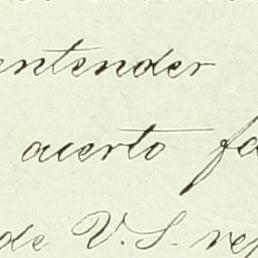 entender
acerto fa
de V. S. rep